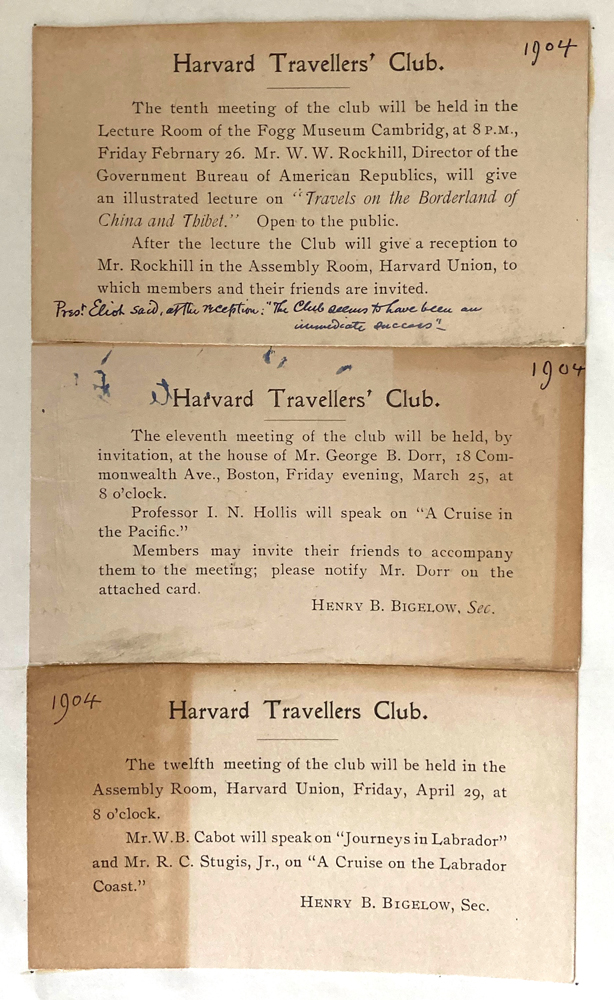 1904
Harvard Travellers' Club.
The tenth meeting of the club will be held in the
Lecture Room of the Fogg Museum Cambridg, at 8 P.M.,
Friday Febrnary 26. Mr. W. W. Rockhill, Director of the
Government Bureau of American Republics, will give
an illustrated lecture on "Travels on the Borderland of
China and Thibet." Open to the public.
After the lecture the Club will give a reception to
Mr. Rockhill in the Assembly Room, Harvard Union, to
which members and their friends are invited.
Prest Eliot said, at the reception: "The Club seems to have been an
immediate success"
1904
Harvard Travellers' Club.
The eleventh meeting of the club will be held, by
invitation, at the house of Mr. George B. Dorr, 18 Com-
monwealth Ave., Boston, Friday evening, March 25, at
8 o'clock.
Professor I. N. Hollis will speak on "A Cruise in
the Pacific."
Members may invite their friends to accompany
them to the meeting; please notify Mr. Dorr on the
attached card.
HENRY B. BIGELOW, Sec.
1904
Harvard Travellers Club.
The twelfth meeting of the club will be held in the
Assembly Room, Harvard Union, Friday, April 29, at
8 o'clock.
Mr. W. B. Cabot will speak on "Journeys in Labrador"
and Mr. R. C. Stugis, Jr., on "A Cruise on the Labrador
Coast."
HENRY B. BIGELOW, Sec.